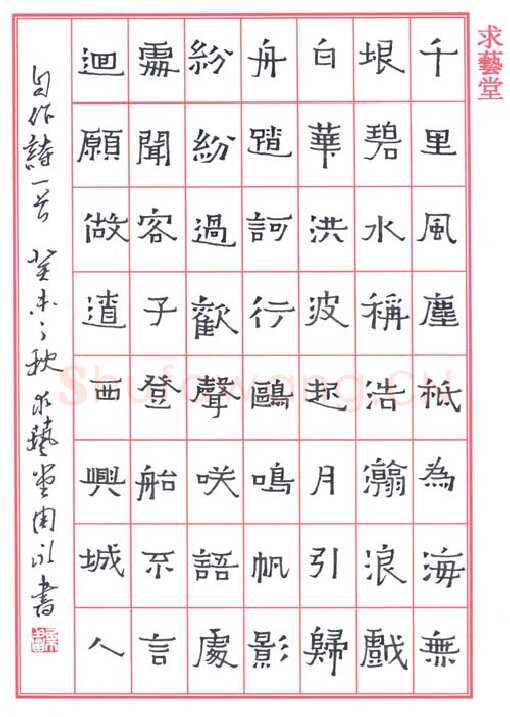 求藝堂
千里風塵祗為海無
垠碧水稱浩瀚浪戲
白華洪波起月引歸
舟行鷗鳴帆影
紛紛過歡聲咲語處
聞客子登船不言
迴願做西興城人
自作詩一首 癸未之秋 求藝堂周書
Shufawang.CN